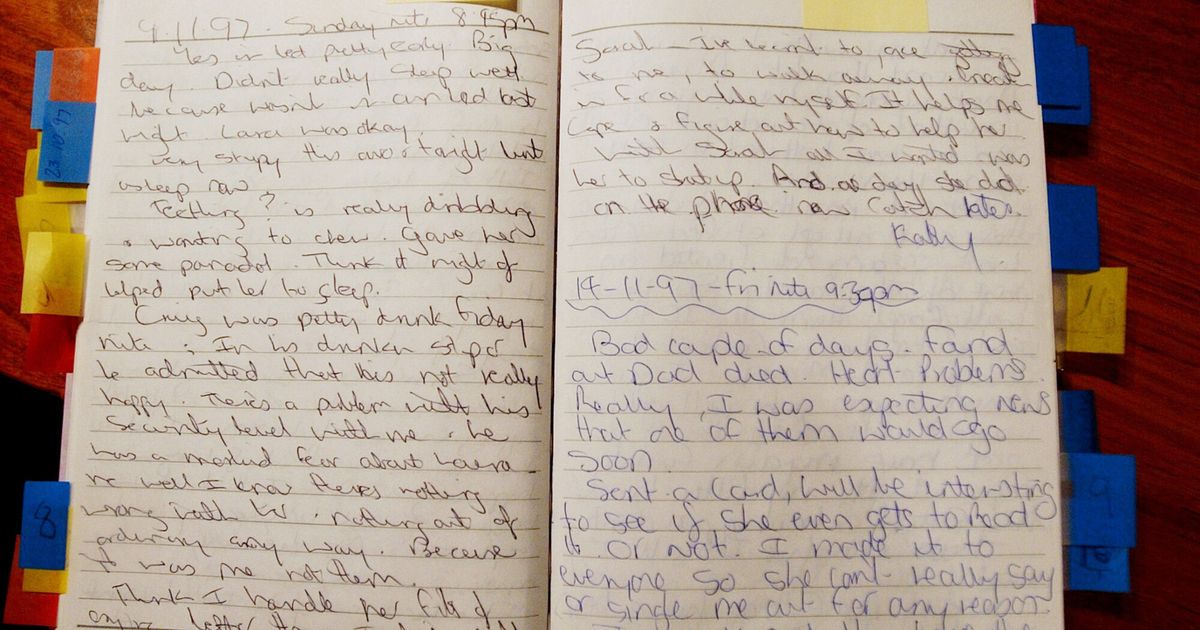 9.11.97. Sunday nite 8.45pm
Yes in bed pretty early. Big
day. Didn't really sleep well
because wasn't last
night Laura was okay.
very this tonight
asleep now
Teething? is really dribbling
& wanting to chew. Gave her
some panadol. Think it might of
helped put her to sleep.
Craig was petty drunk Friday
nite; In his drunken
he admitted that he's not really
happy. There's a problem with his
Security level with me. he
has a fear about Laura
me well I know theres nothing
wrong with her. nothing out of
ordinary any way. Because
it was me not them.
Think I handle her fits of
Sarah - I've learnt to
to me, to walk away.
for a while myself. It helps me
Cope & figure out how to help her
with Sarah all I wanted was
her to shut up. And day she did
on the phone now Catch later.
Kathy
14-11-97 - Fri nite 9.30pm
Bad cople of days. Fand
out Dad died. Heart Problems.
Really, I was expecting news
that one of them would go
soon.
Sent a Card, will be interesting
to see if She even gets to Read
it or Not. I made it to
everyone So she cant really say
or single me out for any reason.
23-10-97
8
9